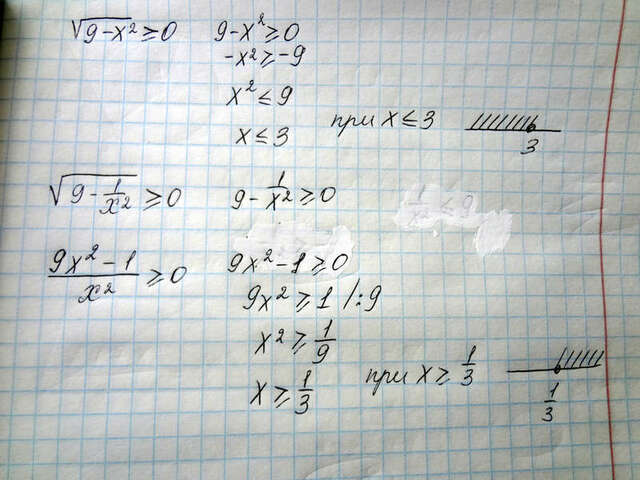 √9-x² ≥ 0    9-x² ≥ 0
-x² ≥ -9
x² ≤ 9
x ≤ 3    при x ≤ 3
3
√9 - 1/x² ≥ 0    9 - 1/x² ≥ 0    1/x² ≤ 9
9x² - 1/x² ≥ 0    9x² - 1 ≥ 0
9x² ≥ 1 /:9
x² ≥ 1/9
x ≥ 1/3    при x ≥ 1/3
1/3